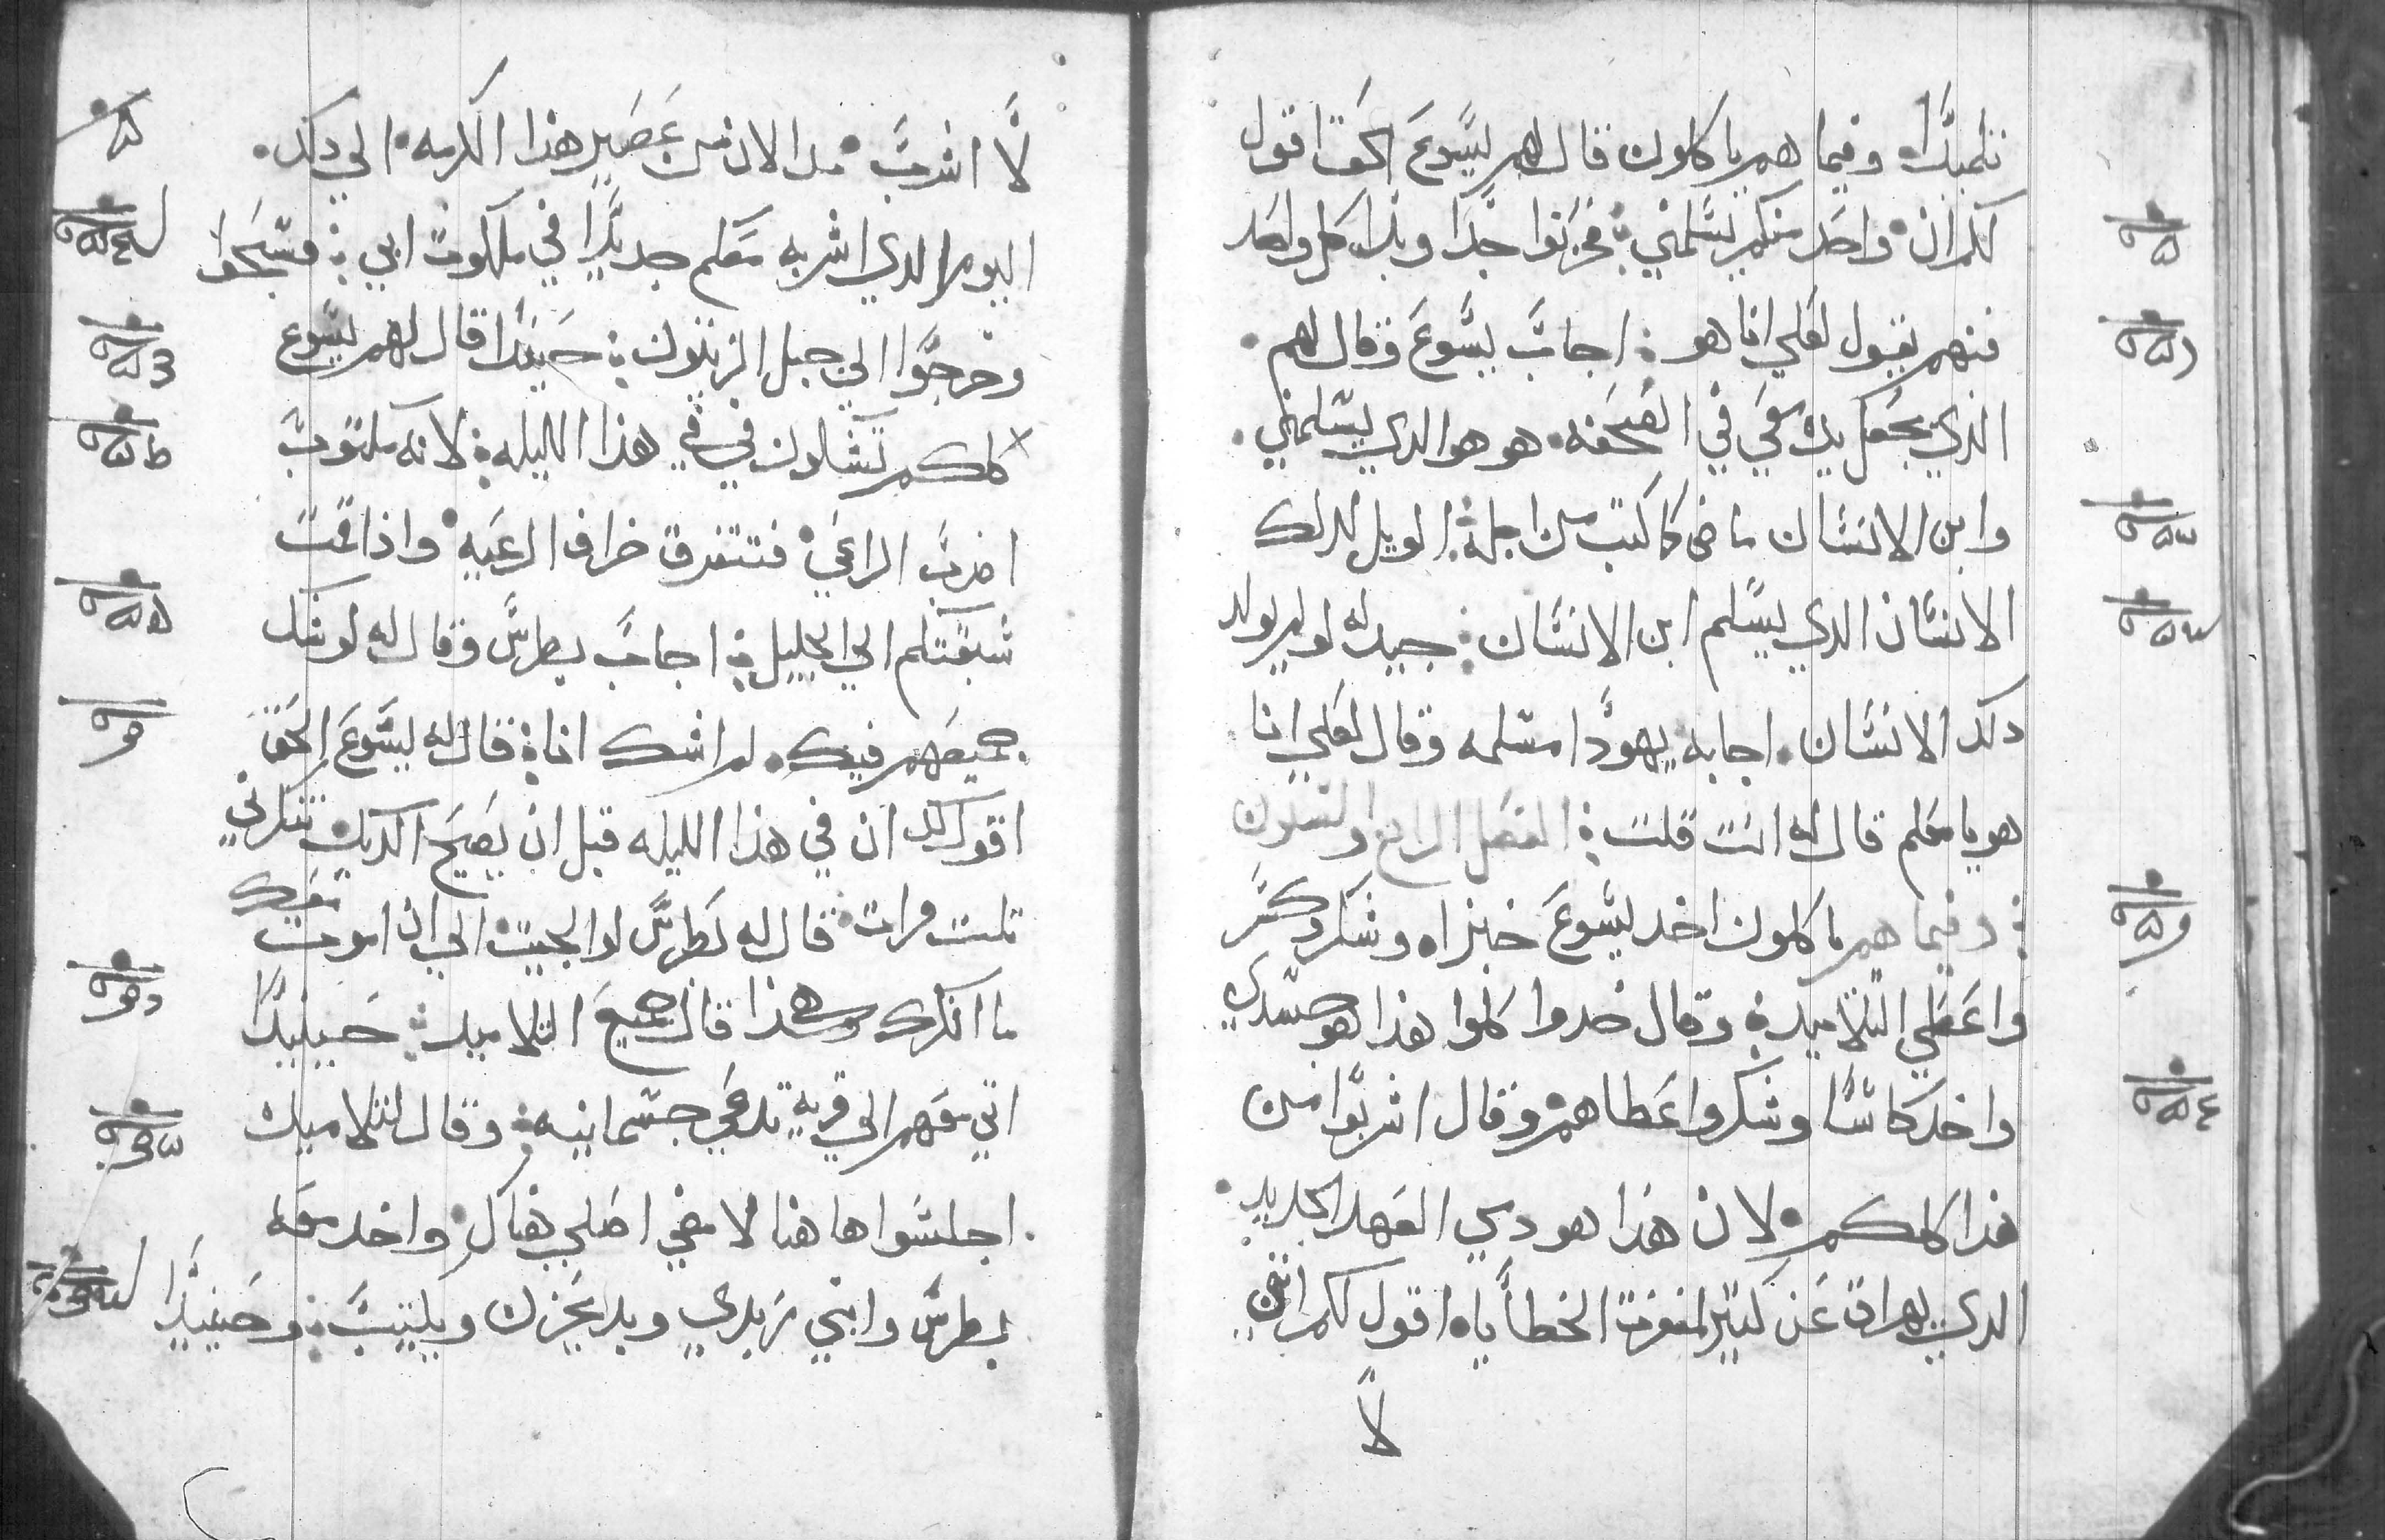 تلميدًاه وفيما هم ياكلون قال لهم يسوع الحق اقول
لكم ان واحد منكم يسلمني فحزنوا جدًا وبدا كل واحد
منهم يقول لعلي انا هو اجاب يسوع وقال لهم
الذي يجعل يده معي في الصحفه هو هو الدي يسلمني
وابن الانسان ماضى كما كتب من اجله الويل لدلك
الانسان الدي يسلم ابن الانسان جيد له لو لم يولد
دلك الانسان اجابه يهودا مسلمه وقال لعلي انا
هو يا معلم قال له انت قلت الفصل الرابع والتسعون
وفيما هم ياكلون اخد يسوع خبزاه وشكر وكسر
واعطي التلاميد وقال خدوا كلوا هدا هو جسدي
واخد كاسًا وشكر واعطاهم وقال اشربوا من
هدا كلكم لان هذا هو دمي العهد الجديد
الدي يهراق عن كتير لمغفرت الخطاياه اقول لكم انني
لا
لا اشرب من الان من عصير هذا الكرمه الي دلك
اليوم الدي اشربه معكم جديدًا في ملكوت ابي فسبحوا
وخرجوا الي جبل الزيتون حينيدا قال لهم يسوع
كلكم تشكون في في هذا الليله لانه مكتوب
اضرب الراعي فتتفرق خراف الرعيه واذا قمت
سبقتكم الي الجليل اجاب بطرس وقال له لو شك
جميعهم فيك لم اشك انا قال له يسوع الحق
اقول لك ان في هذا الليله قبل ان يصيح الديك تنكرني
تلت مرات قال له بطرس لو الجيت الي ان اموت معك
ما انكرك وهكذا قال جميع التلاميد حينيدًا
اتي معهم الي قريه تدعي جسمانيه وقال لتلاميده
اجلسوا هاهنا لامضي اصلي هناك واخد معه
بطرس وابني زبدي وبدا يحزن ويكتيب وحينيدًا